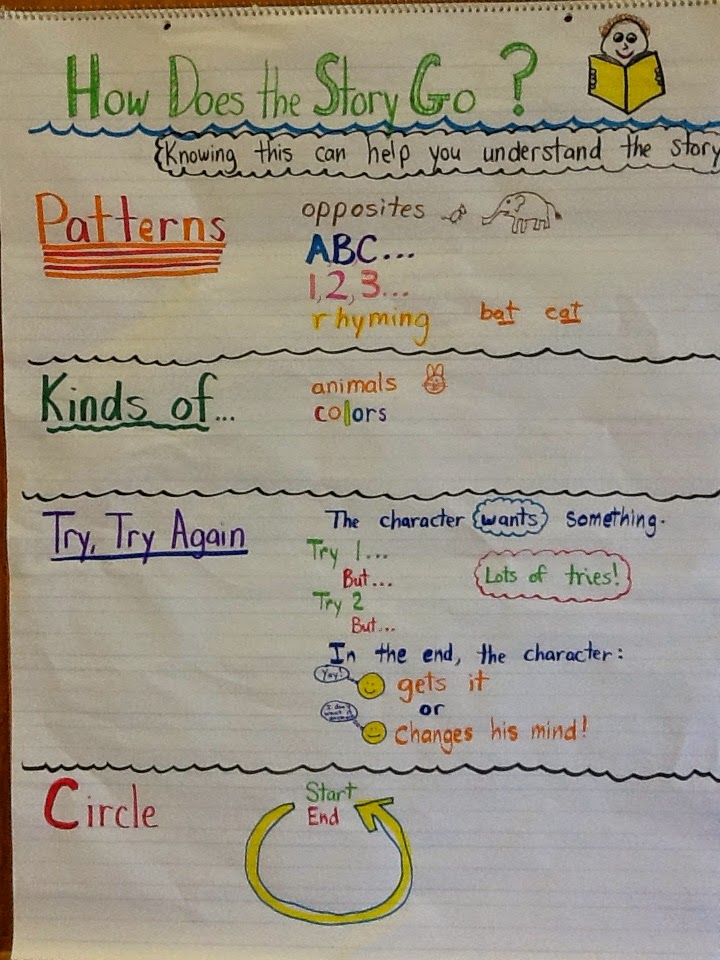 How Does the Story Go?
Knowing this can help you understand the story
Patterns
opposites
ABC...
1,2,3...
rhyming bat cat
Kinds of...
animals
colors
Try, Try Again
The character wants something.
Try 1...
But...
Lots of tries!
Try 2
But...
In the end, the character:
Yay!
gets it
or
I don't want it anymore
changes his mind!
Circle
Start
End